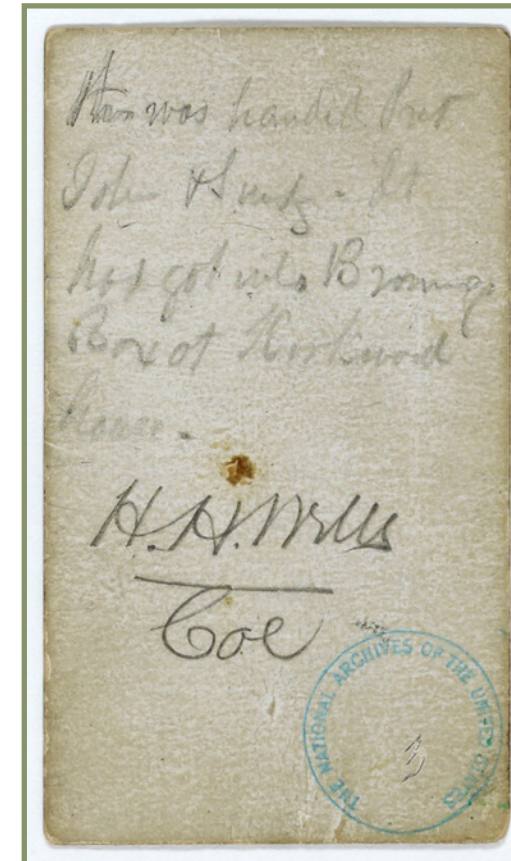 was handed
John
has got into Browning
Box at Kirkwood
House -
H. H. Wells
Col
THE NATIONAL ARCHIVES OF THE UNITED STATES